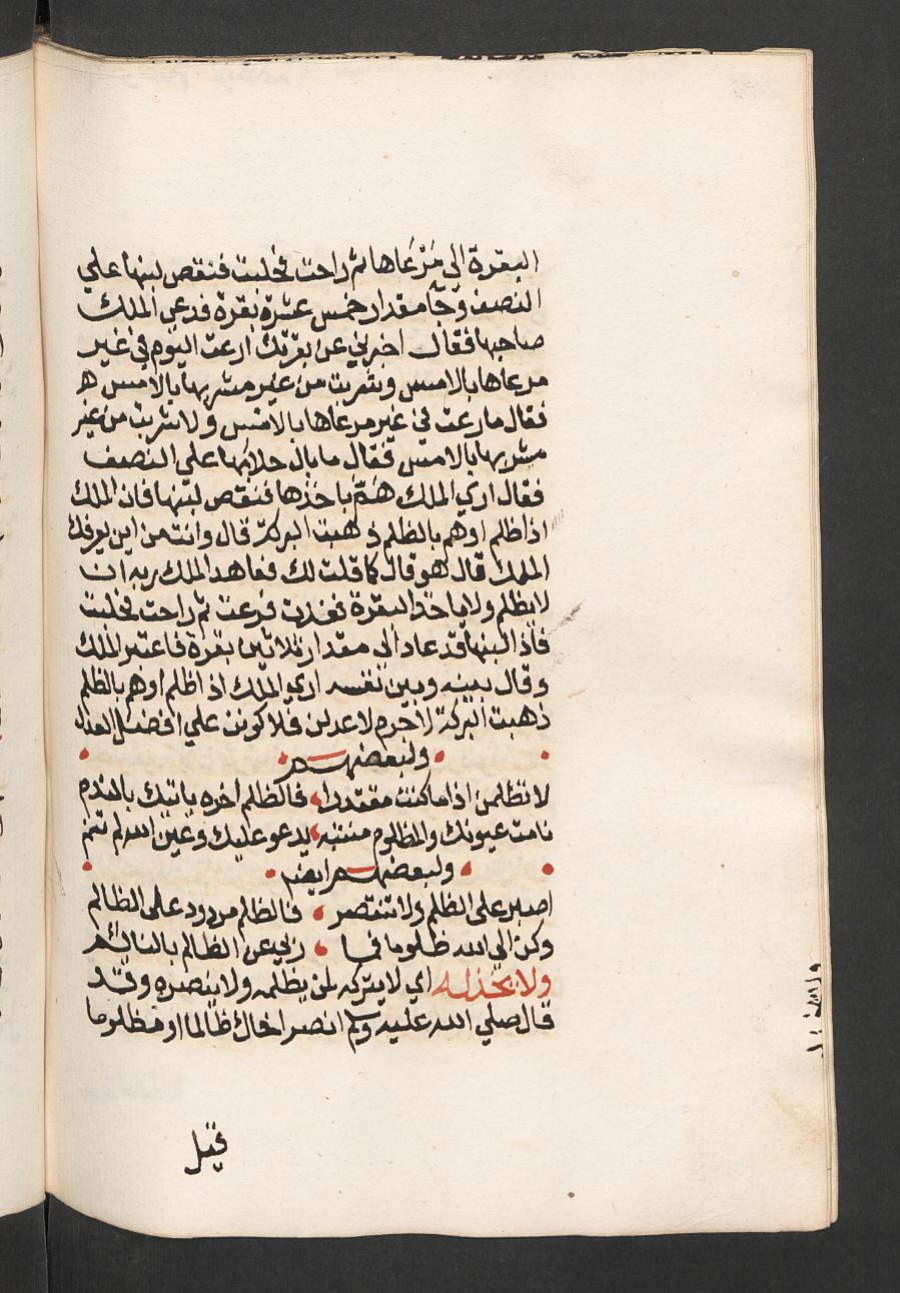 البقرة الي مَرْعَاها ثم راحت فحلبت فنقص لبنها علي
النصف وجآ مقدار خمس عشرة بقرة فدعي الملك
صاحبها فقال اخبريني عن بقرتك ارعت اليوم في غير
مرعاها بالامس وشربت من غير مشربها بالامس ه
فقال مارعت في غير مرعاها بالامس ولا شربت من غير
مشربها بالامس فقال مابال حلابها علي النصف
فقال اري الملك هَمَّ باخذها فنقص لبنها فان الملك
اذا ظلم اوهم بالظلم ذهبت البركة قال وانت من اين يعرفك
الملك قال هو قال كما قلت لك فعاهد الملك ربه ان
لايظلم ولاياخذ البقرة فغدت فرعت ثم راحت فحلبت
فاذا لبنها قد عاد الي مقدار ثلاثين بقرة فاعتبر الملك
وقال بينه وبين نفسه اري الملك اذا ظلم اوهم بالظلم
ذهبت البركة لاجرم لاعدلن فلاكونن علي افضل العدل
ولبعضهم
لاتظلمن اذا ماكنت مقتدرا فالظلم اخره ياتيك بالندم
نامت عيونك والمظلوم منتبه يدعو عليك وعين الله لم تنم
ولبعضهم ايضا
اصبر علي الظلم ولاتنتصر فالظلم مردود علي الظالم
وكن الي الله ظلوما فما ربي عن الظالم بالنائم
ولايخذله اي لايتركه لمن يظلمه ولاينصره وقد
قال صلي الله عليه وسلم انصر اخاك ظالما او مظلوما
قيل